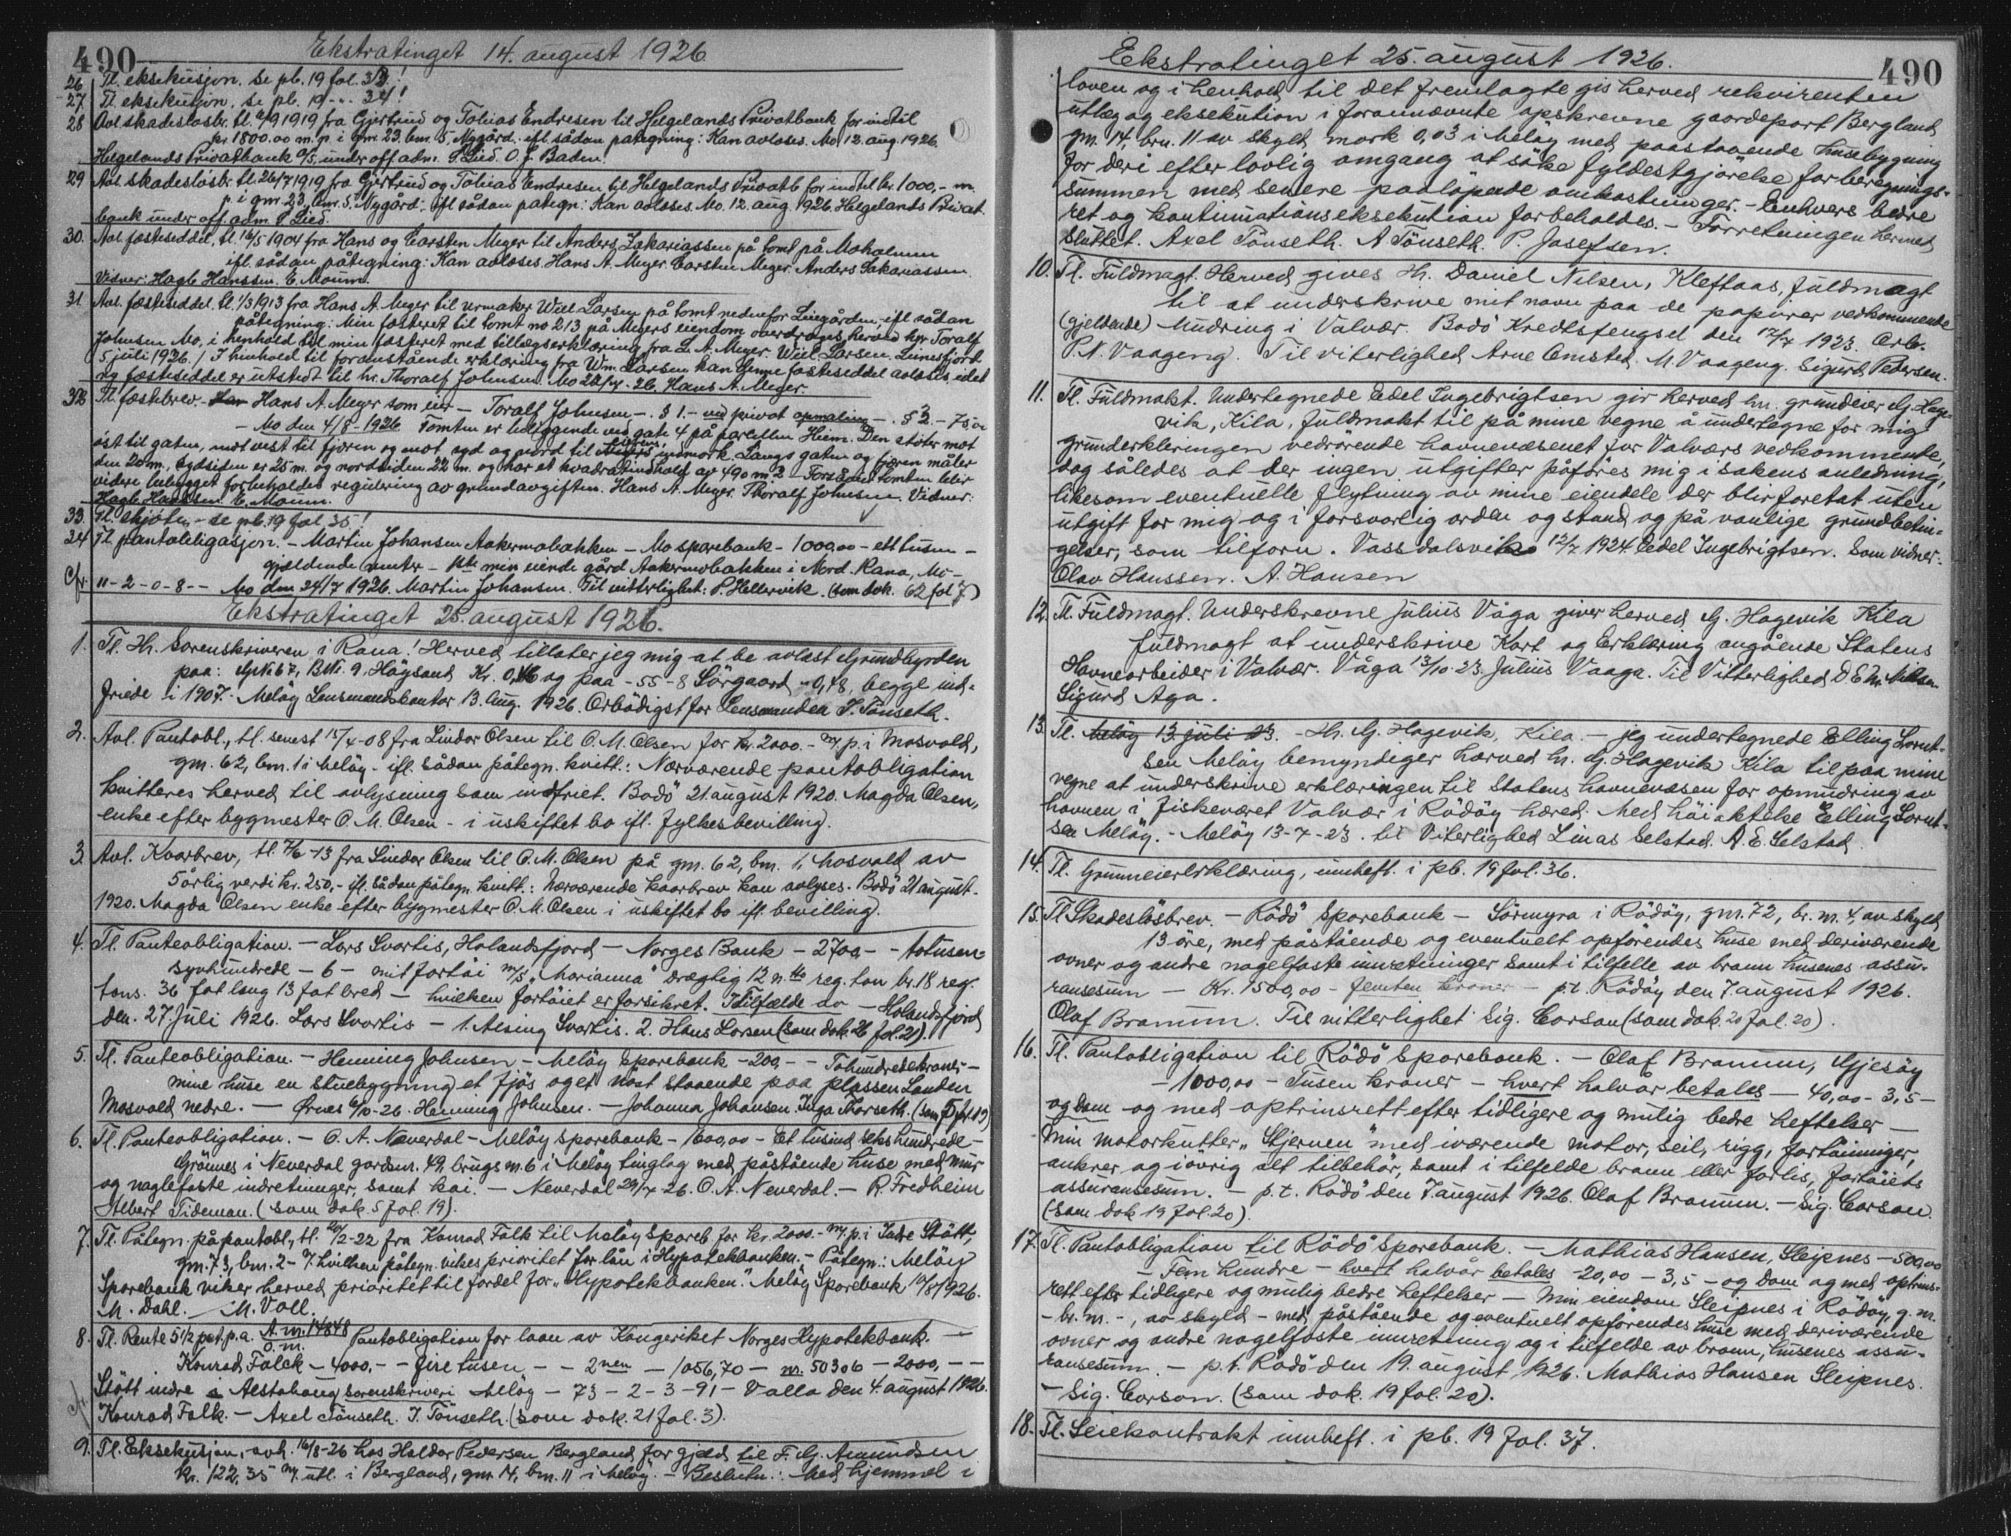 490
Ekstratinget 14. august 1926
26 Tl. eksekusjon. se pb. 19 fol. 33!
27 Tl. eksekusjon. se pb. 19 - - 34!
28 Avl. skadesløsbr. tl. 2/9 1919 fra Gjertrud og Tobias Endresen til Helgelands Privatbank for indtil
kr. 1800.00 m. p. i gnr. 23. bnr. 5. Nygård. ifl. sådan påtegning: Kan avløses. Mo 12. aug. 1926.
Helgelands Privatbank A/S. under off. adm. P. Lied. O. J. Baden.
29 Avl. skadesløsbr. tl. 26/7 1919 fra Gjertrud og Tobias Endresen til Helgelands Privatb for indtil kr. 1000,- m.
p. i gnr. 23, bnr. 5. Nygård: ifl. sådan påtegn: Kan avløses. Mo. 12. aug. 1926. Helgelands Privat
bank under off. adm. P. Lied.
30. Avl. fæsteseddel, tl. 16/5 1904 fra Hans og Carsten Meyer til Anders Zakariassen på tomt på Moholmen
ifl. sådan påtegning: Kan avløses. Hans A. Meyer. Carsten Meyer. Anders Sakariassen
Vidner: Hagb. Hanssen. E. Moum.
31. Avl. fæsteseddel. tl. 1/3 1913 fra Hans A. Meyer til urmaker Wiel Larsen på tomt nedenfor Liegården, ifl. sådan
påtegning: Min fæsterett til tomt no 213 på Meyers eiendom overdrages herved hr. Toralf
Johnsen Mo, i henhold til min fæsterett med tillægserklæring fra L. A. Meyer. Wiel Larsen. Leinesfjord
5 juli 1926. / I henhold til foranstående erklæring fra Wm. Larsen kan denne fæsteseddel avløses, idet
ny fæsteseddel er utstedt til hr. Thoralf Johnsen. Mo 28/7 - 26. Hans A. Meyer.
32 Tl. fæstebrev. - Hans A. Meyer som eier - Toralf Johnsen - . § 1. - ved privat opmaling - . § 2. - 75 øre
- Mo den 4/8 - 1926. Tomten er beliggende ved gate 4 på parcellen Heim. Den støter mot
øst til gaten, mot vest til fjæren og mot syd og nord til Meyers utmark. Langs gaten og fjæren måler
den 20 m, sydsiden er 25 m. og nordsiden 22 m. og har et kvadratindhold av 490 m2 - Forsåvidt tomten blir
videre bebygget forbeholdes regulering av grundavgiften. Hans A. Meyer. Thoralf Johnsen. Vidner:
Hagb. Hanssen. E. Moum.
33. Tl. skjøte, - se pb. 19 fol. 35!
34 Tl. pantobligasjon. - Martin Johansen Aakermobakken - Mo sparebank - 1000,00 - ett tusen -
gjældende rente - min eiende gård Aakermobakken i Nord. Rana, Mo -
11 - 2 - 0 - 8 - - Mo den 24/7 1926. Martin Johansen. Til vitterlighet: P. Hellervik. (som dok. 62 fol 7)
Ekstratinget 25. august 1926.
1. Tl. Hr. Sorenskriveren i Rana! Herved tillater jeg mig at be avlæst Grundbyrden
paa: GNr 67, BNr. 9. Högsand Kr. 0,16 og paa - 55 - 8 Sörgaard - 0,48, begge ind-
friede i 1907. Melöy Lensmandskontor 13. aug. 1926. Ærbödigst for Lensmanden J. Tönseth.
2. Avl. Pantobl., tl. senest 15/4 - 08 fra Lindor Olsen til O. M. Olsen for kr. 2000. - m/p. i Mosvold,
gnr. 62, bnr. 1 i Melöy - ifl. sådan påtegn. kvitt.: Nærværende pantobligation
kvitteres herved til avlysning som indfriet. Bodö 21 august 1920. Magda Olsen,
enke efter bygmester O. M. Olsen - i uskiftet bo ifl. fylkesbevilling.
3. Avl. Kaarbrev, tl. 7/6 - 13 fra Lindor Olsen til O. M. Olsen på gnr. 62, bnr. 1, Mosvold av
5 årlig verdi kr. 250,- ifl. sådan påtegn. kvitt.: Nærværende kaarbrev kan avlyses. Bodö 21 august.
1920. Magda Olsen enke efter bygmester O. M. Olsen i uskiftet bo ifl. bevilling).
4. Tl. Panteobligation. - Lars Svartis, Holandsfjord - Norges Bank - 2700,- - totusen-
syvhundrede - 6 - mit fartöi m/s „Marianna" drægtig 12 n.tto reg. ton br. 18 reg.
tons. 36 fot lang 13 fot bred - hvilken fartöiet er forsikret. I tilfælde av - Holandsfjord
den. 27. Juli 1926. Lars Svartis - 1. Aesing Svartis. 2. Hans Larsen (som dok. 26 fol. 21).
5. Tl. Panteobligation. - Henning Johnsen - Melöy Sparebank - 200,- - Tohundredekroner -
mine huse en stuebygning, et fjös og et nöst staaende paa plassen Landen
Mosvold nedre. - Ørnes 6/10 - 26. Henning Johnsen. - Johanna Johansen. Inga Thorseth. (som 5 fol. 19)
6. Tl. Panteobligation. - O. A. Neverdal - Melöy sparebank - 1600,00 - Et tusind sekshundrede -
Grönnes i Neverdal gardsnr. 49, brugs nr. 6 i Melöy tinglag med påstående huse med mur
og naglefaste indretninger samt kai. - Neverdal 29/7 26. O. A. Neverdal. - R. Fredheim
Albert Tideman. (som dok. 5 fol. 19).
7. Tl. Påtegn. på pantobl., tl. 20/2 - 22 fra Konrad Falk til Melöy Spareb. for kr. 2000. - m/p. i Indre Stött,
gnr. 73, bnr. 2 - v/ hvilken påtegn. vikes prioritet for lån i Hypotekbanken. - Påtegn.: Melöy
Sparebank viker herved prioritet til fordel for „Hypotekbanken". Melöy Sparebank 10/8 1926.
M. Dahl. M. Voll.
8. Tl. Rente 5 1/2 pct. p. a. A. m. 14848 Pantobligation for laan av Kongeriket Norges Hypotekbank. -
Konrad Falck - 4000,- - fire tusen - - 2nen - 1056,70 - m. 50306 - 2000,- -
Stött indre i Alstahaug sorenskriveri Melöy - 73 - 2 - 3 - 91 - Valla den 4. august 1926.
Konrad Falk. - Axel Tönseth. J. Tönseth. (som dok. 21 fol. 3).
9. Tl. Eksekusjon, avh. 16/8 - 26 hos Haldor Pedersen Bergland for gjæld til F. G. Amundsen
kr. 122,35 m/ utl. i Bergland, gnr. 14, bnr. 11 i Melöy. - Beslutn.: Med hjemmel i
Ekstratinget 25. august 1926.
490
loven og i henhold til det fremlagte gis herved rekvirenten
utlæg og eksekution i forannævnte opskrevne gaardepart Bergland
gnr. 14, bnr. 11 av skyld mark 0,03 i Melöy med paastaaende husebygning
for deri efter lovlig omgang at söke fyldestgjörelse for beregnings-
summen med senere paalöpende omkostninger. - Enhvers bedre
ret og kontinuationseksekution forbeholdes. - Forretningen hermed
sluttet. Axel Tönseth. A Tönseth. P. Josefsen.
10. Tl. Fuldmagt. Herved gives Hr. Daniel Nilsen, Kleftaas, fuldmagt
til at underskrive mit navn paa de papirer vedkommende
(gjeldende) Mudring i Valvær. Bodö Kredlsfengsel den 12/7 1923. Ærb.
P. N. Vaageng. Til viterlighed Arne Omsted. M. Vaageng. Sigurd Pedersen.
11. Tl. Fuldmakt. Undertegnede Edel Ingebrigtsen gir herved hr. grundeier G. Hage-
vik, Kila, fuldmakt til på mine vegne å undertegne for mig
grunderklæringen vedrörende havnevæsenet for Valværs vedkommende,
dog således at der ingen utgifter påföres mig i sakens anledning,
likesom eventuelle flytning av mine eiendele der blir foretat uten
utgift for mig og i forsvarlig orden og stand og på vanlige grundbetin-
gelser, som tilforn. Vassdalsvik 12/7 1924 Eedel Ingebrigtsen. Som vidner.
Olav Hanssen. A. Hansen
12. Tl. Fuldmagt. Underskrevne Julius Våga giver herved G. Hagevik Kila
fuldmagt at underskrive Kort og Erklæring angående Statens
Havnearbeider i Valvær. Våga 13/10 23. Julius Vaaga. Til Vitterlighed D E hr Nilsen
Sigurd Aga.
13. Tl. Melöy 13 juli 23. - Hr. G. Hagevik, Kila. - jeg undertegnede Elling Lornt-
sen Melöy bemyndiger hærved hr. G. Hagevik Kila til paa mine
vegne at underskrive erklæringen til Statens havnevæsen for opmudring av
havnen i fiskeværet Valvær i Rödöy hæred. Med höiaktelse Elling Lornt-
sen Melöy. - Melöy 13 - 7 - 23. til Viterlighed Linas Selstad. A. E. Selstad.
14. Tl. Grunneiererklæring, innheft. i pb. 19 fol. 36.
15. Tl Skadeslösbrev. - Rödö Sparebank - Sörmyra i Rödöy, gnr. 72, br. nr. 4, av skyld
13 öre, med påstående og eventuelt opförendes huse med deriværende
ovner og andre nagelfaste innretninger samt i tilfelle av brann husenes assu-
ransesum - Kr. 1500,00 - femten kroner - p. t. Rödöy den 7. august 1926.
Olaf Bramun. Til vitterlighet Sig. Corson (som dok. 20 fol. 20).
16. Tl. Pantobligation til Rödö Sparebank. - Olaf Bramun, Gjesöy
- 1000,00 - Tusen kroner - hvert halvår betales - 40,00 - 3,5 -
og dom - og med optrinsrett efter tidligere og mulig bedre heftelser -
Min motorkutter „Stjernen" med iværende motor, seil, rigg, fortöininger,
ankrer og iövrig alt tilbehör, samt i tilfelde brann eller forlis, fartöiets
assuransesum. - p. t. Rödö den 7. august 1926. Olaf Bramun. - Sig. Corson.
(som dok. 19 fol. 20).
17. Tl. Pantobligation til Rödö Sparebank. - Mathias Hansen, Sleipnes - 500,00
- Fem hundre - hvert halvår betales - 20,00 - 3,5 - og dom og med optrins-
rett efter tidligere og mulig bedre heftelser - Min eiendom Sleipnes i Rödöy, g. nr.
- br. nr. -, av skyld - med påstående og eventuelt opförendes huse med deriværende
ovner og andre nagelfaste innretning og i tilfelde av brann, husenes assu-
ransesum. - p. t. Rödö den 19. august 1926. Mathias Hansen Sleipnes.
- Sig. Corson. (som dok. 19 fol. 20).
18. Tl. Leiekontrakt innheft. i pb. 19 fol. 37.